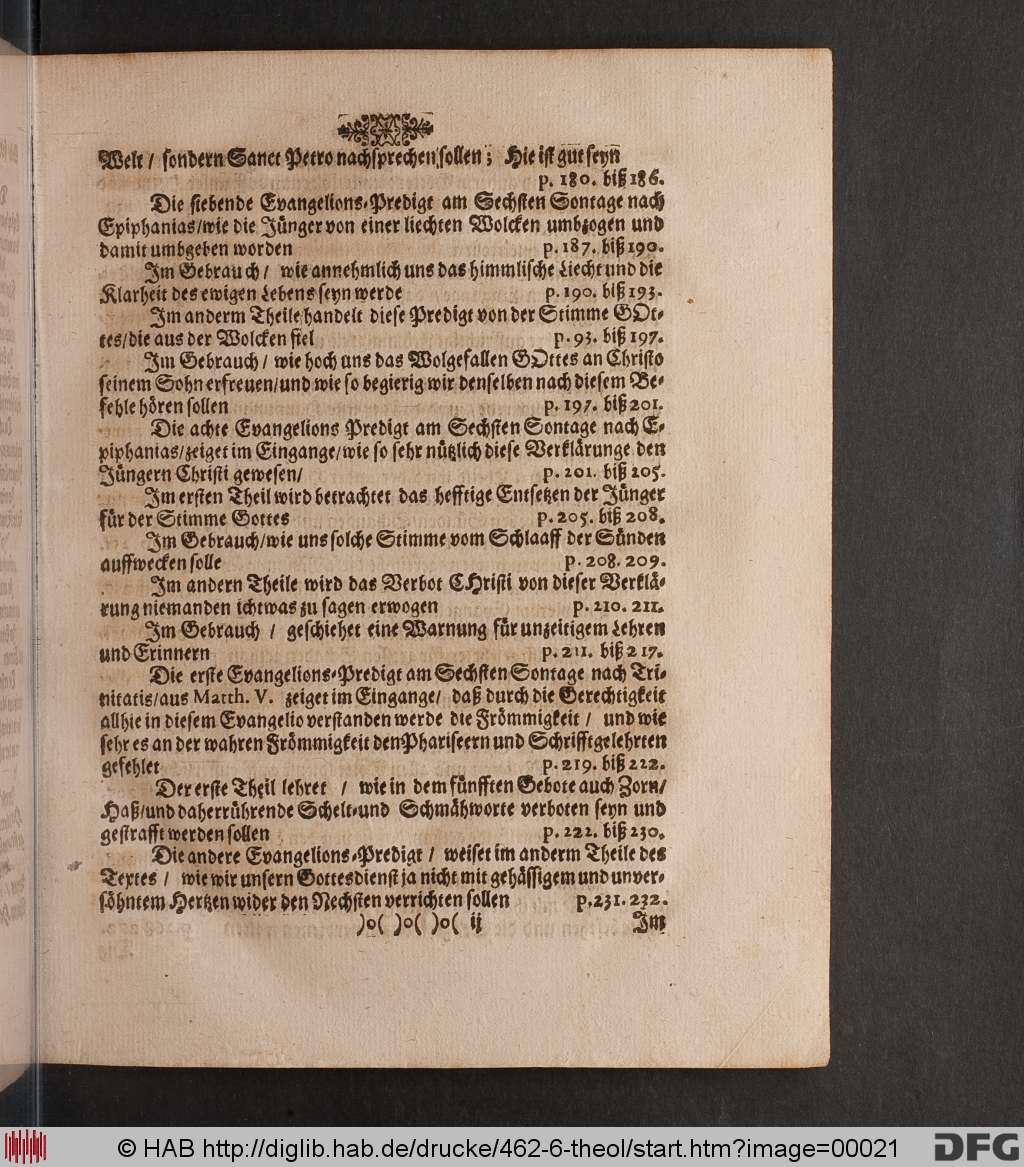 Welt / sondern Sanct Petro nachsprechen sollen ; Hie ist gut seyn
p. 180. biß 186.
Die siebende Evangelions-Predigt am Sechsten Sontage nach
Epiphanias/wie die Jünger von einer liechten Wolcken umbzogen und
damit umbgeben worden p. 187. biß 190.
Im Gebrauch / wie annehmlich uns das himmlische Liecht und die
Klarheit des ewigen Lebens seyn werde p. 190. biß 193.
Im anderm Theile handelt diese Predigt von der Stimme GOt-
tes/die aus der Wolcken fiel p. 93. biß 197.
Im Gebrauch / wie hoch uns das Wolgefallen GOttes an Christo
seinem Sohn erfreuen/und wie so begierig wir denselben nach diesem Be-
fehle hören sollen p. 197. biß 201.
Die achte Evangelions Predigt am Sechsten Sontage nach E-
piphanias/zeiget im Eingange/wie so sehr nützlich diese Verklärunge den
Jüngern Christi gewesen/ p. 201. biß 205.
Im ersten Theil wird betrachtet das hefftige Entsetzen der Jünger
für der Stimme Gottes p. 205. biß 208.
Im Gebrauch/wie uns solche Stimme vom Schlaaff der Sünden
auffwecken solle p. 208. 209.
Im andern Theile wird das Verbot CHristi von dieser Verklä-
rung niemanden ichtwas zu sagen erwogen p. 210. 211.
Im Gebrauch / geschiehet eine Warnung für unzeitigem Lehren
und Erinnern p. 211. biß 217.
Die erste Evangelions-Predigt am Sechsten Sontage nach Tri-
nitatis/aus Matth. V. zeiget im Eingange/ daß durch die Gerechtigkeit
allhie in diesem Evangelio verstanden werde die Frömmigkeit / und wie
sehr es an der wahren Frömmigkeit den Phariseern und Schrifftgelehrten
gefehlet p. 219. biß 222.
Der erste Theil lehret / wie in dem fünfften Gebote auch Zorn/
Haß/und daherrührende Schelt-und Schmähworte verboten seyn und
gestrafft werden sollen p. 222. biß 230.
Die andere Evangelions-Predigt / weiset im anderm Theile des
Textes / wie wir unsern Gottesdienst ja nicht mit gehässigem und unver-
söhntem Hertzen wider den Nechsten verrichten sollen p.231. 232.
)o( )o( )o( ij Im
© HAB http://diglib.hab.de/drucke/462-6-theol/start.htm?image=00021
DFG